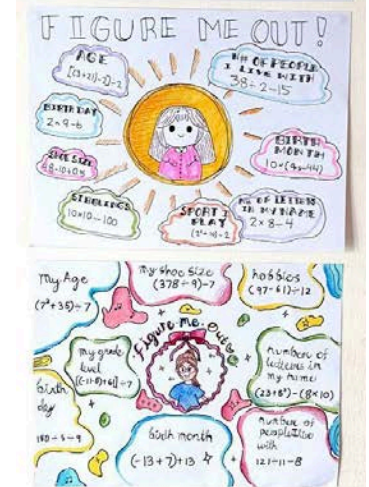 FIGURE ME OUT!
AGE
# OF PEOPLE
I LIVE WITH
38÷2-15
BIRTHDAY
2×9-6
BIRTH
MONTH
SHOE SIZE
SIBLINGS
10×10-100
SPORT I
PLAY
# OF LETTERS
IN MY NAME
2×8-4
My Age
(7²+35)÷7
my shoe size
(378÷9)-7
hobbies
(97-61)÷12
Figure-me-out
my grade
level
numbers of
letters in
my name
(23+8²)-(8×10)
birth
day
birth month
(-13+7)+13
number of
people I live
with
121÷11-8